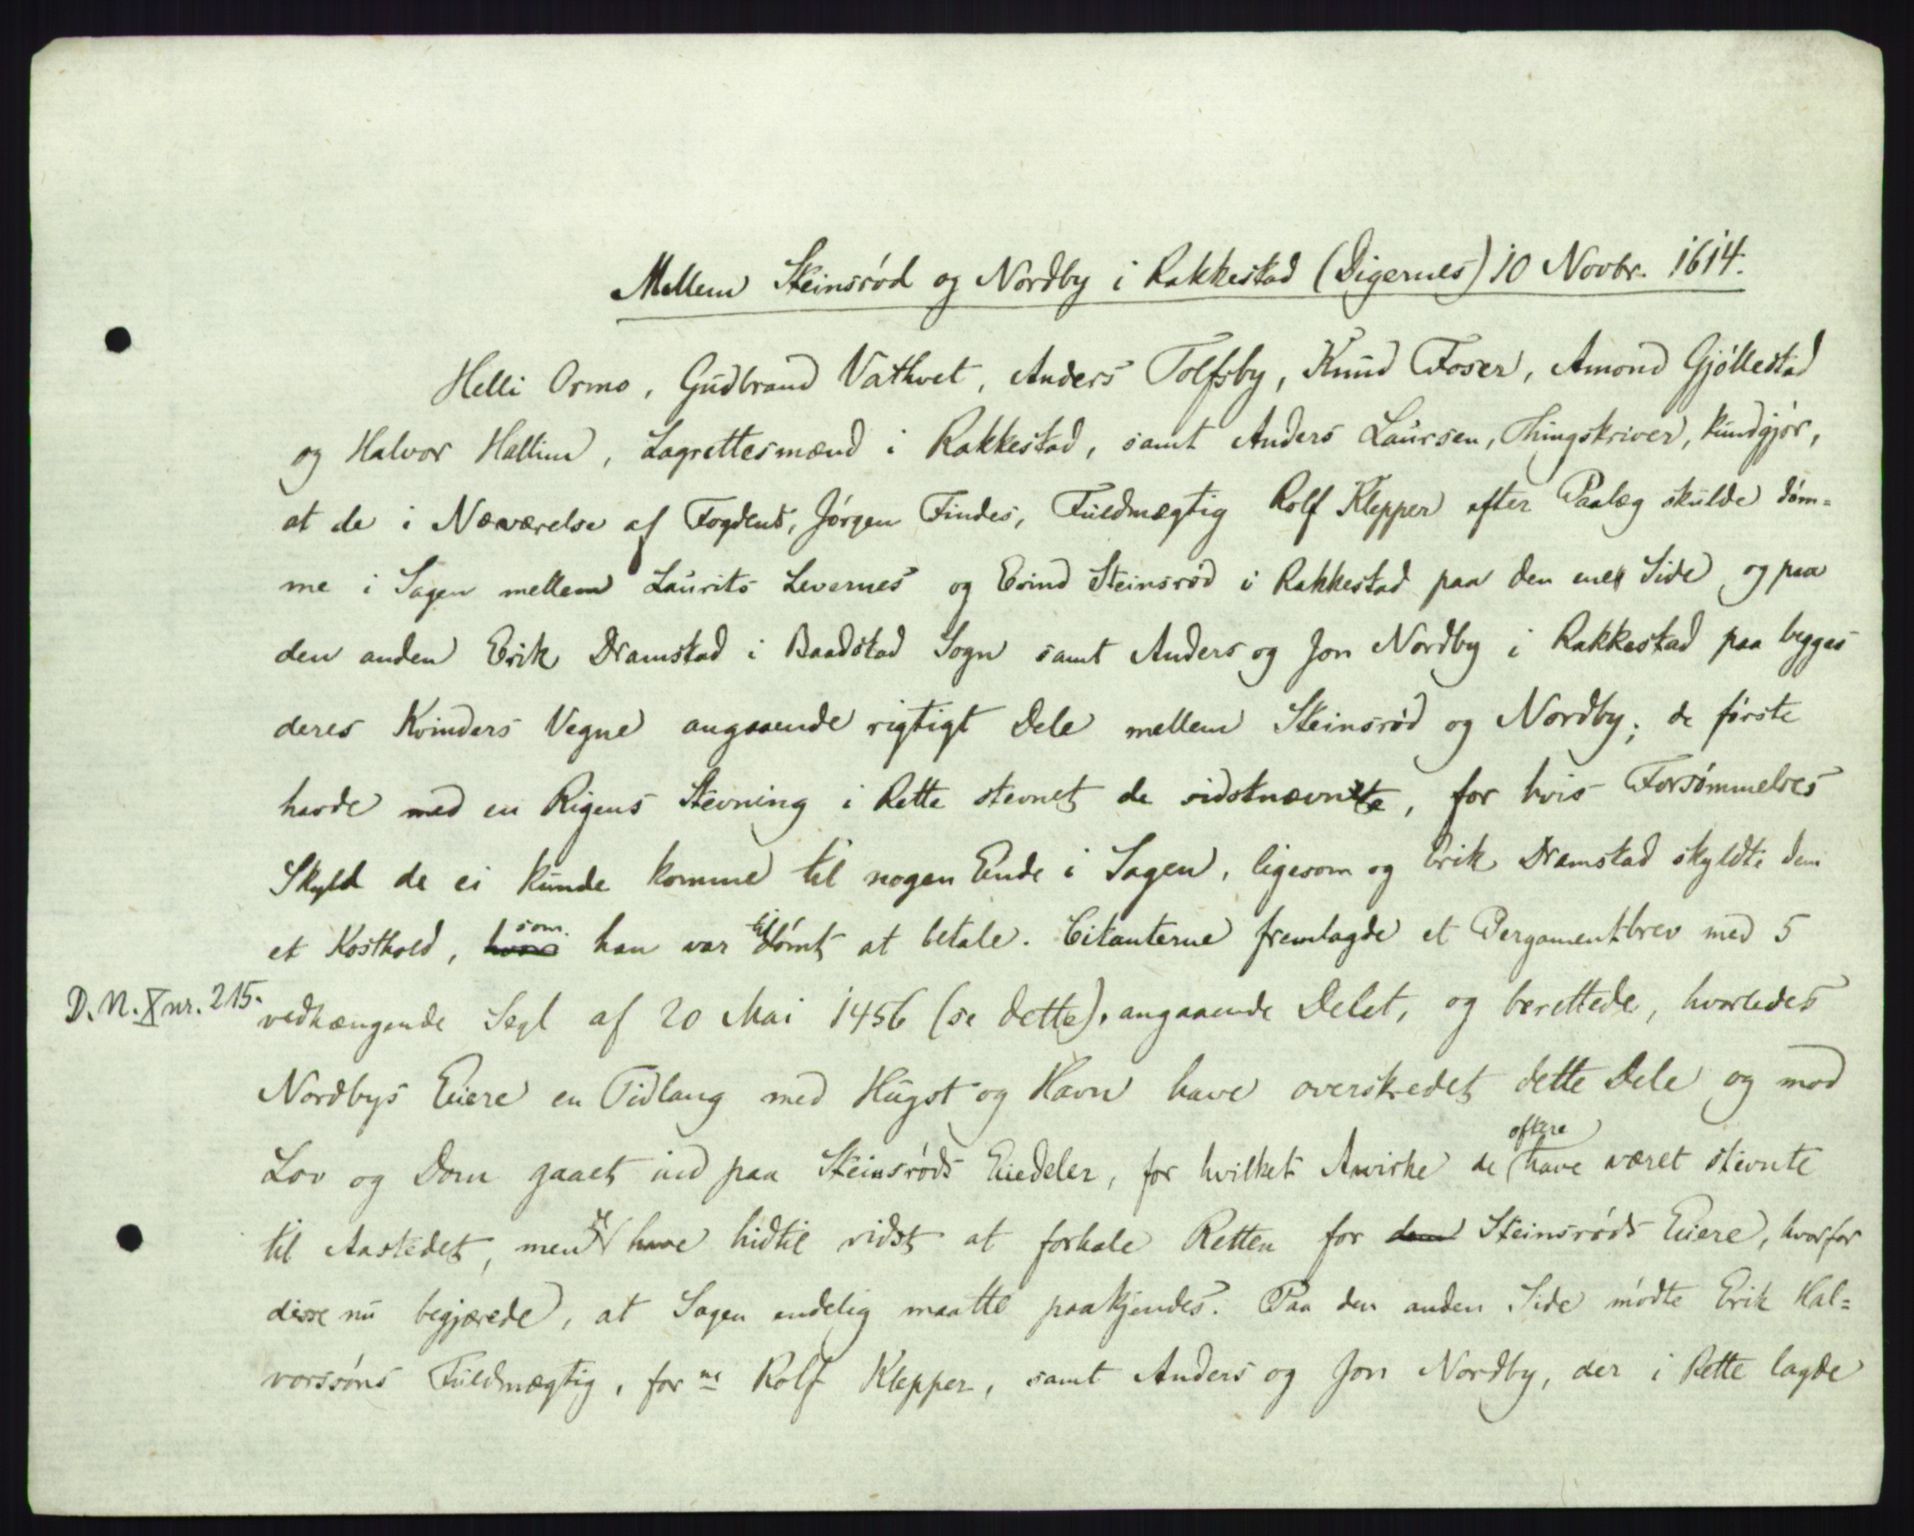 Mellem Steinsrød og Nordby i Rakkestad (Digernes) 10 Novbr. 1614.
Helli Ormo, Gudbrand Vathvet, Anders Tolfsby, Knud Foser, Amond Gjøllestad
og Halvor Hallin, Lagrettesmænd i Rakkestad, samt Anders Laursen, Thingskriver, kundgjør,
at de i Næværelse af Fogdens, Jørgen Findes, Fuldmægtig Rolf Klepper efter Paalæg skulde døm-
me i Sagen mellem Laurits Levernes og Evind Steinsrød i Rakkestad paa den ene Side og paa
den anden Erik Dramstad i Baadstad Sogn samt Anders og Jon Nordby i Rakkestad paa begges
deres Kvinders Vegne angaaende rigtigt Dele mellem Steinsrød og Nordby; de første
havde med en Rigens Stevning i Rette stevnet de sidstnævnte, for hvis Forsømmelses
Skyld de ei kunde komme til nogen Ende i Sagen, ligesom og Erik Dramstad skyldte dem
et Kosthold, som han var tildømt at betale. Citanterne fremlagde et Pergamentbrev med 5
D. N. X nr. 215. vedhængende Segl af 20 Mai 1456 (se dette), angaaende Delet, og berettede, hvorledes
Nordbys Eiere en Tidlang med Hugst og Havn have overskredet dette Dele og mod
Lov og Dom gaaet ind paa Steinsrøds Eiedeler, for hvilket Awirke de oftere have været stevnte
til Aastedet, men de have hidtil vidst at forhale Retten for dem Steinsrøds Eiere, hvorfor
disse nu begjærede, at Sagen endelig maatte paakjendes. Paa den anden Side mødte Erik Hal=
vorssøns Fuldmægtig, for ne Rolf Klepper, samt Anders og Jon Nordby, der i Rette lagde